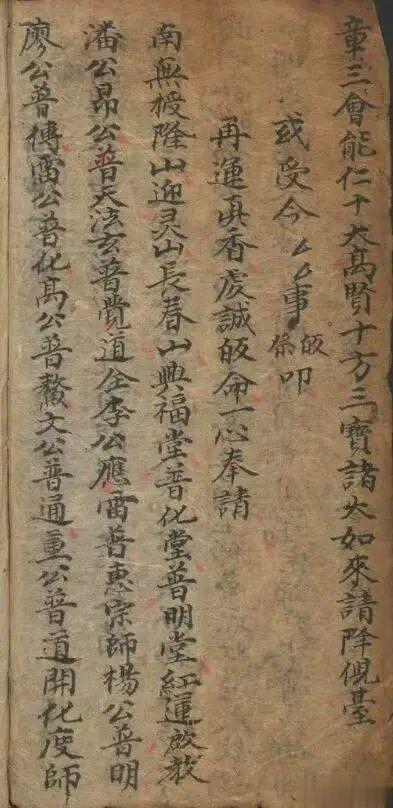 章三會能仁十大高賢十方三寶諸大如來請降俔臺
或受今厶厶事皈條叩
再運真香虔誠皈命一心奉請
南無授隆山迎灵山長春山興福堂普化堂普明堂紅運啟教
潘公昂公普天法玄普覺道全李公應雷普惠宗師楊公普明
廖公普傳雷公普化高公普鰲文公普通董公普道開化度師